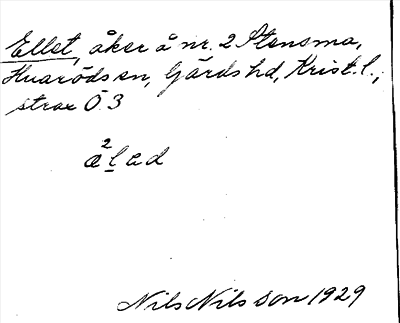 Ellet, åker å nr. 2 Stensma,
Hvaröds sn, Gärds hd, Krist. l.,
strax Ö 3
²
æl ed
Nils Nilsson 1929